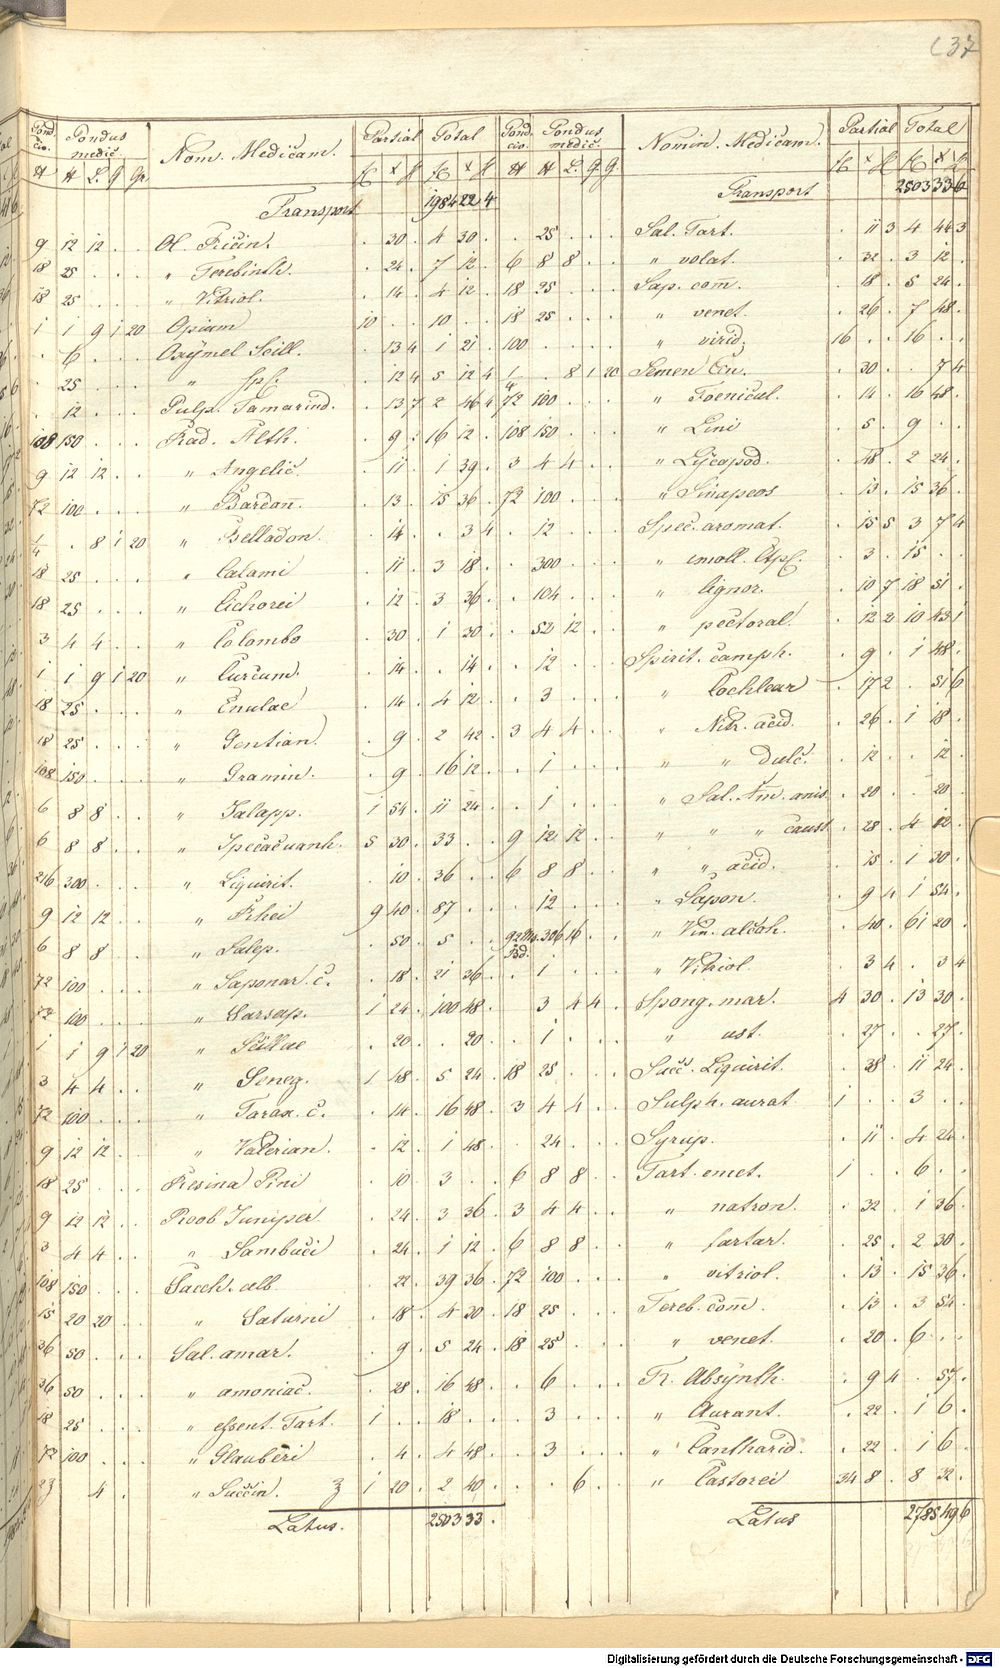 137
Pond. cio. Pondus medic. Nom. Medicam. Partial Total
Transport 1984 22 4
9 12 12 . . Ol. Ricin. . 30 . 4 30 .
18 25 . . . " Terebinth. . 24 . 7 12 .
18 25 . . . " Vitriol. . 14 . 4 12 .
1 1 9 1 20 Opium 10 . . 10 . .
. 6 . . . Oxÿmel Scill. . 13 4 1 21 .
. 25 . . . " spl. . 12 4 5 12 4
. 12 . . . Pulp. Tamarind. . 13 7 2 46 4
108 150 . . . Rad. Alth. . 9 . 16 12 .
9 12 12 . . " Angelic. . 11 . 1 39 .
72 100 . . . " Bardan. . 13 . 15 36 .
1/4 . 8 1 20 " Belladon. . 14 . . 3 4
18 25 . . . " Calami . 11 . 3 18 .
18 25 . . . " Cichorei . 12 . 3 36 .
3 4 4 . . " Colombo . 30 . 1 30 .
1 1 9 1 20 " Curcum. . 14 . . 14 .
18 25 . . . " Enulae . 14 . 4 12 .
18 25 . . . " Gentian. . 9 . 2 42 .
108 150 . . . " Gramin. . 9 . 16 12 .
6 8 8 . . " Jalapp. 1 54 . 11 24 .
6 8 8 . . " Ipecacuanh. 5 30 . 33 . .
216 300 . . . " Liquirit. . 10 . 36 . .
9 12 12 . . " Rhei 9 40 . 87 . .
6 8 8 . . " Salep. . 50 . 5 . .
72 100 . . . " Saponar. c. . 18 . 21 36 .
72 100 . . . " Sarsap. 1 24 . 100 48 .
1 1 9 1 20 " Scillae . 20 . . 20 .
3 4 4 . . " Seneg. 1 48 . 5 24 .
72 100 . . . " Tarax. c. . 14 . 16 48 .
9 12 12 . . " Valerian. . 12 . 1 48 .
18 25 . . . Resina Pini . 10 . 3 . .
9 12 12 . . Roob Juniper . 24 . 3 36 .
3 4 4 . . " Sambuci . 24 . 1 12 .
108 150 . . . Sacch. alb . 22 . 39 36 .
15 20 20 . . " Saturni . 18 . 4 30 .
36 50 . . . Sal. amar. . 9 . 5 24 .
36 50 . . . " amoniac. . 28 . 16 48 .
18 25 . . . " essent. Tart. 1 . . 18 . .
72 100 . . . " Glauberi . 4 . 4 48 .
4 . " Succin. 1 20 . 2 40 .
Latus. 2503 33 .
Pond. cio. Pondus medic. Nomin. Medicam. Partial Total
Transport 2503 33 6
. 25 . . . Sal. Tart. . 11 3 4 44 3
6 8 8 . . " volat. . 32 . 3 12 .
18 25 . . . Sap. com. . 18 . 5 24 .
18 25 . . . " venet. . 26 . 7 48 .
100 . . . " virid. 16 . . 16 . .
1/4 . 8 1 20 Semen Cin. . 30 . . 7 4
72 100 . . . " Foenicul. . 14 . 16 48 .
108 150 . . . " Lini . 5 . 9 . .
3 4 4 . . " Lÿcopod. . 48 . 2 24 .
72 100 . . . " Sinapeos . 13 . 15 36 .
. 12 . . . Spec. aromat. . 15 5 3 7 4
. 300 . . . " emoll. Ctpl. . 3 . 15 . .
. 104 . . . " lignor. . 10 7 18 51 .
. 52 12 . . " pectoral. . 12 2 10 43 1
. 12 . . . Spirit. camph. . 9 . 1 48 .
. 3 . . . " Cochlear . 17 2 . 51 6
3 4 4 . . " Nitr. acid. . 26 . 1 18 .
. 1 . . . " " dulc. . 12 . . 12 .
. 1 . . . " Sal. Am. anis. . 20 . . 20 .
9 12 12 . . " " " caust . 28 . 4 12 .
6 8 8 . . " " acid. . 15 . 1 30 .
. 12 . . . " Sapon. . 9 4 1 54 .
92 Ms. 306 16 . . " Vin. alcoh. . 40 . 61 20 .
Bd. . 1 . . . " Vitriol . 3 4 . 3 4
3 4 4 . Spong. mar. 4 30 . 13 30 .
. 1 . . . " ust. . 27 . . 27 .
18 25 . . . Succ. Liquirit. . 38 . 11 24 .
3 4 4 . . Sulph. aurat. 1 . . 3 . .
. 24 . . . Syrup. . 11 . 4 24 .
6 8 8 . . Tart. emet. 1 . . 6 . .
3 4 4 . . " natron. . 32 . 1 36 .
6 8 8 . . " tartar. . 25 . 2 30 .
72 100 . . . " vitriol. . 13 . 15 36 .
18 25 . . . Tereb. com. . 13 . 3 54 .
18 25 . . . " venet. . 20 . 6 . .
. 6 . . . Tr. Absÿnth. . 9 4 . 57 .
. 3 . . . " Aurant. . 22 . 1 6 .
. 3 . . . " Cantharid. . 22 . 1 6 .
. . 6 . . " Castorei 34 8 . 8 32 .
Latus 2785 49 6
Digitalisierung gefördert durch die Deutsche Forschungsgemeinschaft - DFG